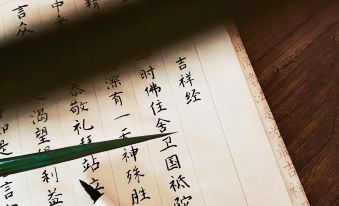 吉祥经
一时佛住舍卫国祇陀
深有一天神殊胜
恭敬礼拜站
渴望得利益
如是
言
精
中央
言众